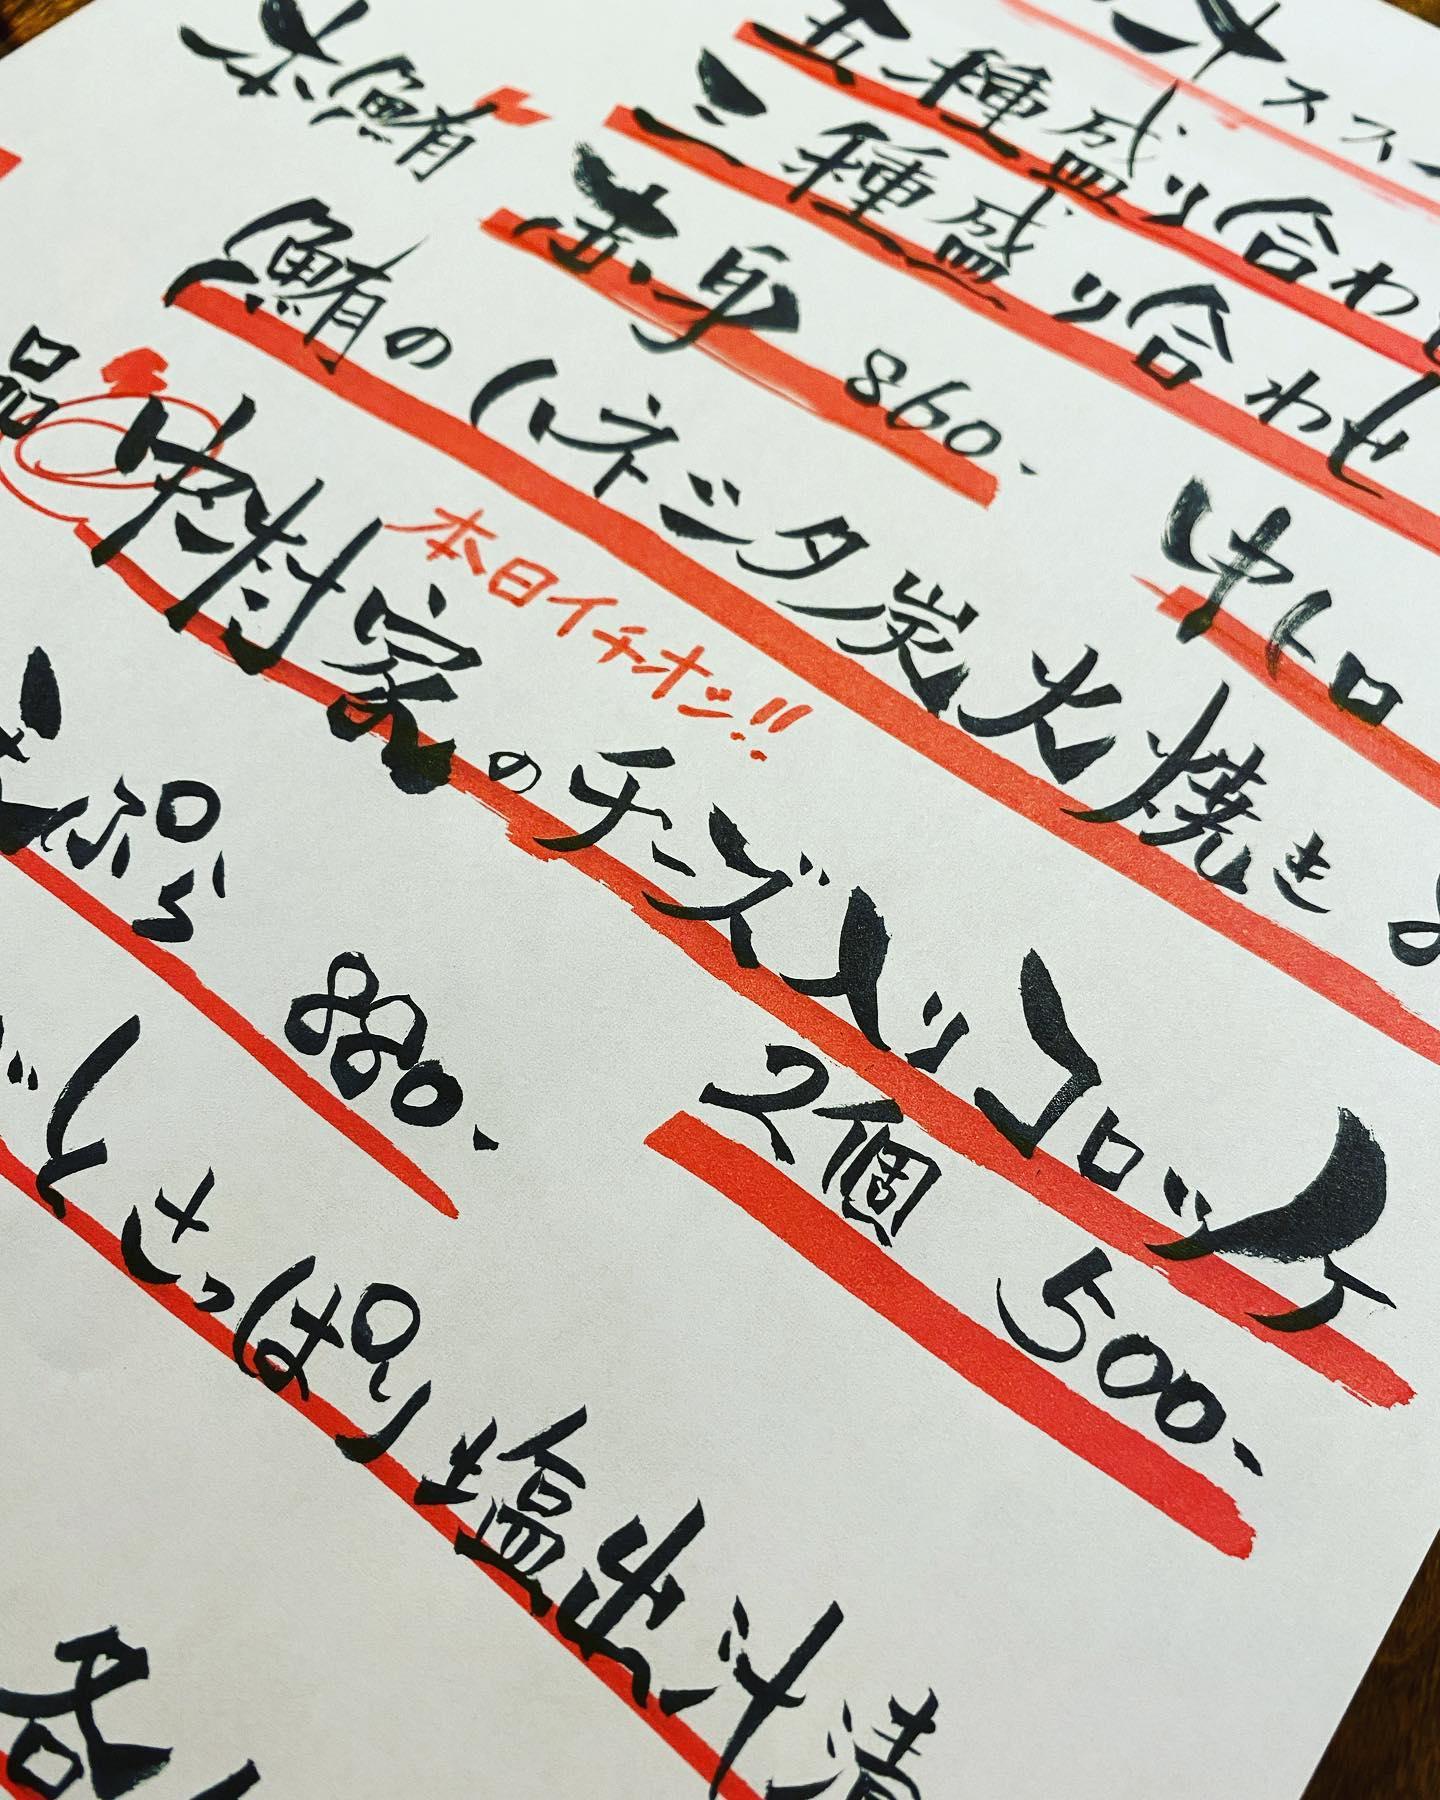 オススメ
五種盛り合わせ
三種盛り合わせ
本鮪
赤身 860-
中トロ
鮪のハネシタ炭火焼き 8
品
本日イチオシ!!
中村家のチーズ入りコロッケ
2個 500-
天ぷら 880-
とさっぱり塩出汁漬
各